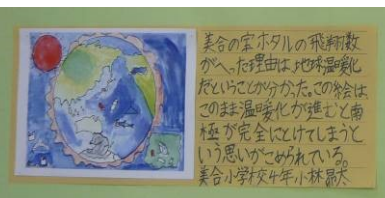 美合の宝ホタルの飛翔数
がへった理由は、地球温暖化
だということが分かった。この絵は、
このまま温暖化が進むと南
極が完全にとけてしまうと
いう思いがこめられている。
美合小学校4年小林昴太